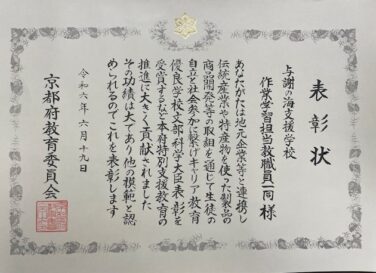 表彰状
与謝の海支援学校
作業学習担当教職員一同 様
あなたがたは地元企業等と連携し
伝統産業や特産物を使った製品の
商品開発等の取組を通して生徒の
自立と社会参加に繋げキャリア教育
優良学校文部科学大臣表彰を
受賞するなど本府特別支援教育の
推進に大きく貢献されました
その功績は大であり他の模範と認
められるのでこれを表彰します
令和六年六月十九日
京都府教育委員会